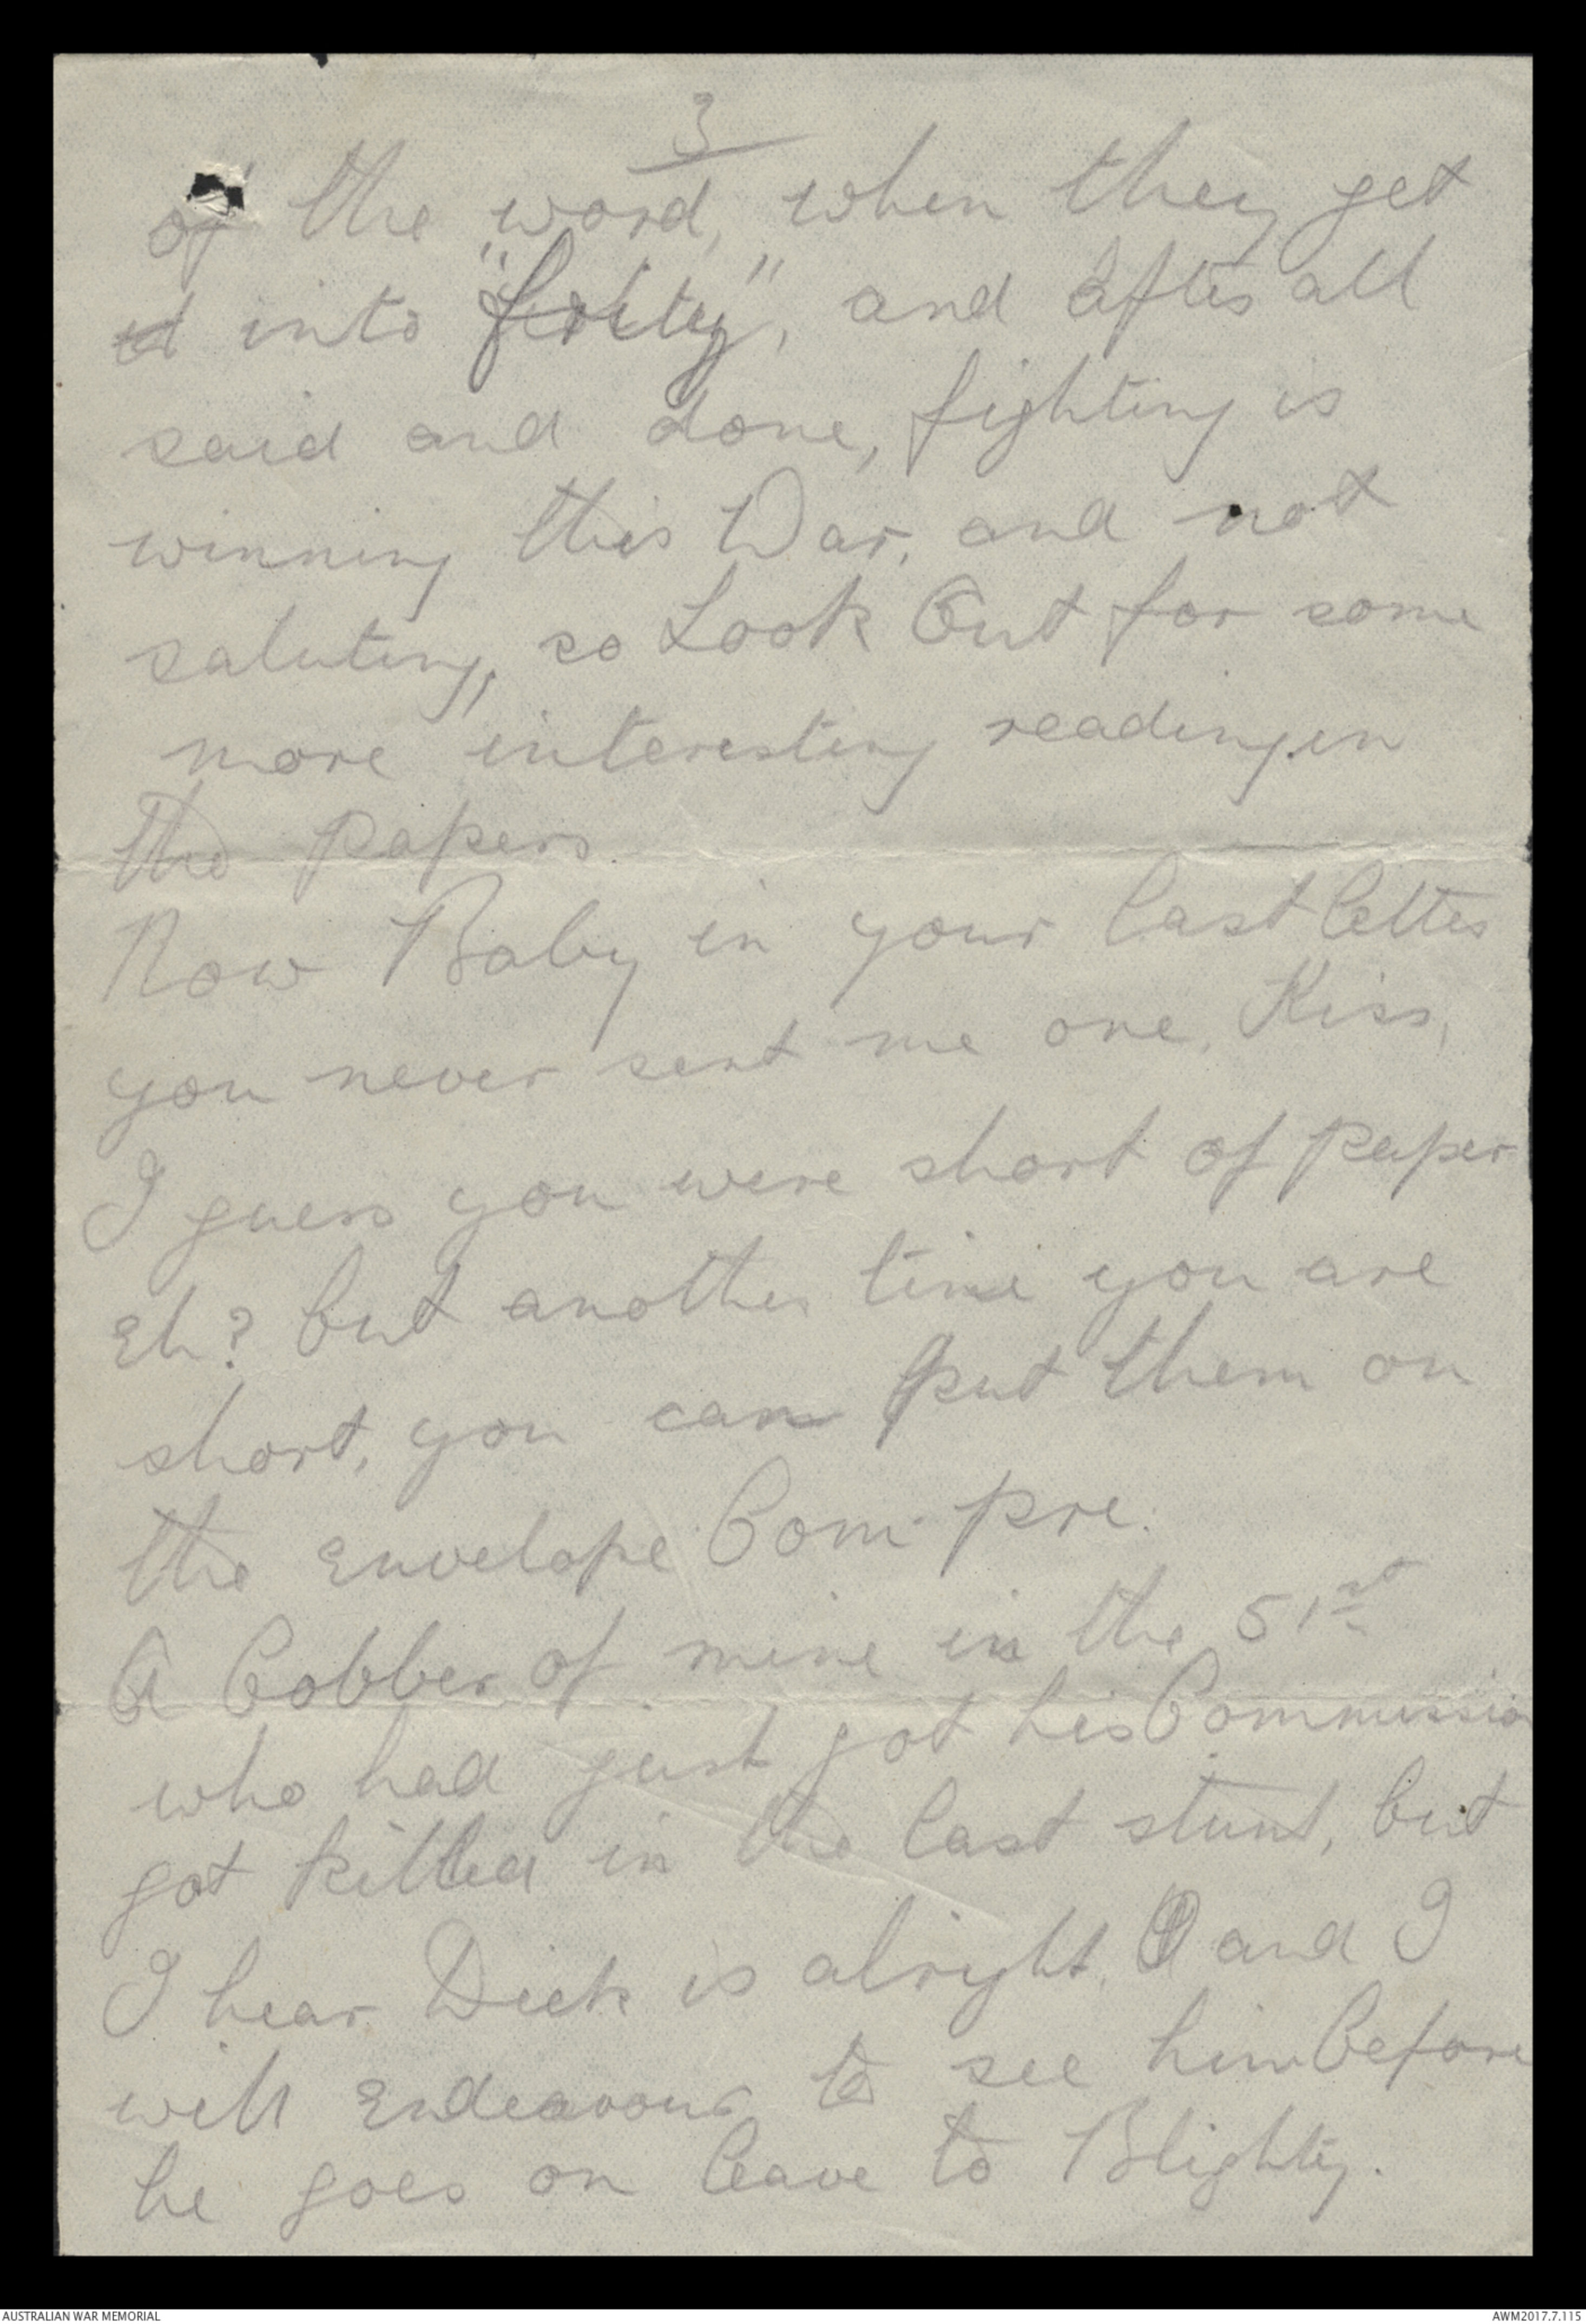 3
of the word, when they get
into "          ", and after all
said and done, fighting is
winning this War, and not
saluting, so Look Out for some
more interesting reading in
the papers.
Now Baby in your last letter
you never sent me one, Kiss,
I guess you were short of paper
Eh? but another time you are
short, you can put them on
the Envelope Com-pre.
A Cobber of mine in the 51st
who had just got his Commission
got killed in the last stunt, but
I hear Dick is alright, and I
will Endeavour to see him before
he goes on leave to Blighty.
AUSTRALIAN WAR MEMORIAL
AWM2017.7.115